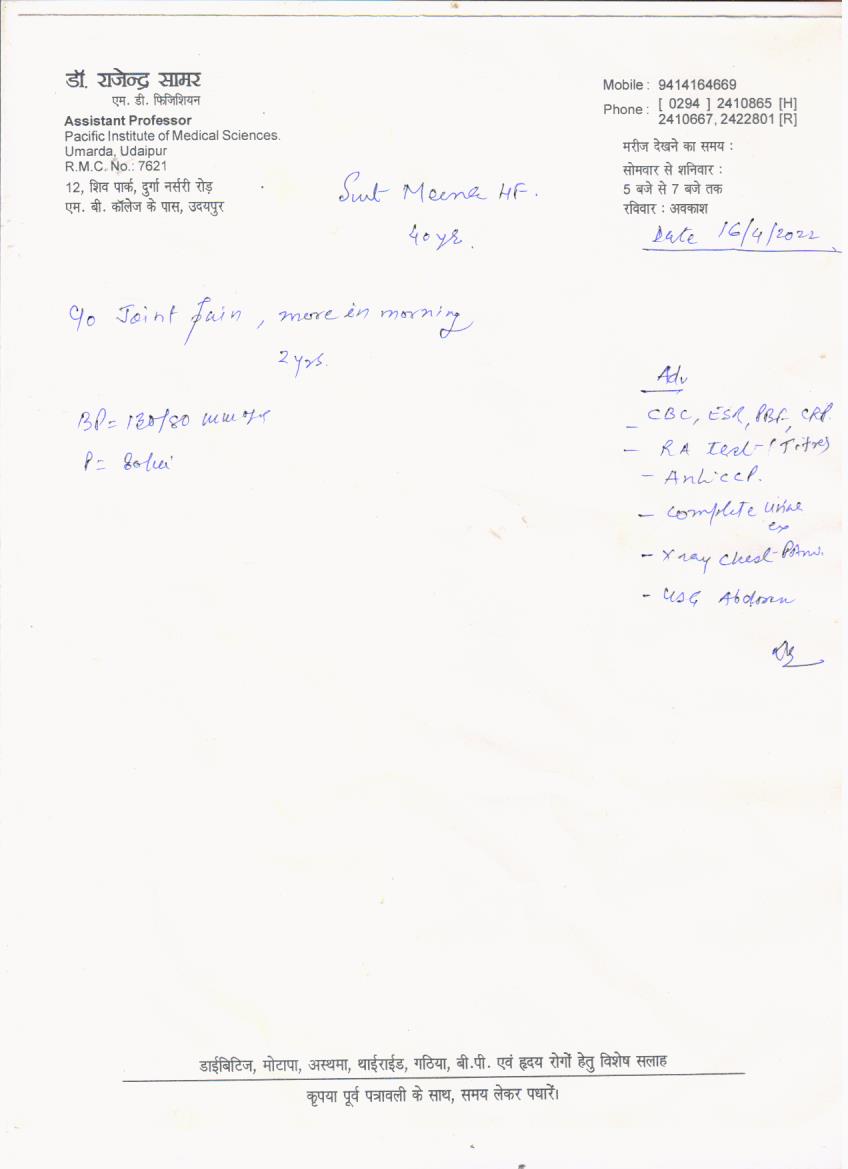 डॉ. राजेन्द्र सामर
एम. डी. फिजिशियन
Assistant Professor
Pacific Institute of Medical Sciences.
Umarda, Udaipur
R.M.C. No.: 7621
12, शिव पार्क, दुर्गा नर्सरी रोड़
एम. बी. कॉलेज के पास, उदयपुर
Mobile : 9414164669
Phone : [ 0294 ] 2410865 [H]
2410667, 2422801 [R]
मरीज देखने का समय :
सोमवार से शनिवार :
5 बजे से 7 बजे तक
रविवार : अवकाश
Date 16/4/2022
Smt Meena
40 yr.
C/o Joint pain, more in morning
2 yrs.
BP = 130/80 mm
P = 80/
Adv
- CBC, ESR, PBF, CRP.
- RA test - (Titre)
- Anti CCP.
- Complete Urine
ex
- X ray Chest -
- USG Abdomen
डाईबिटिज, मोटापा, अस्थमा, थाईराईड, गठिया, बी.पी. एवं हृदय रोगों हेतु विशेष सलाह
कृपया पूर्व पत्रावली के साथ, समय लेकर पधारें।